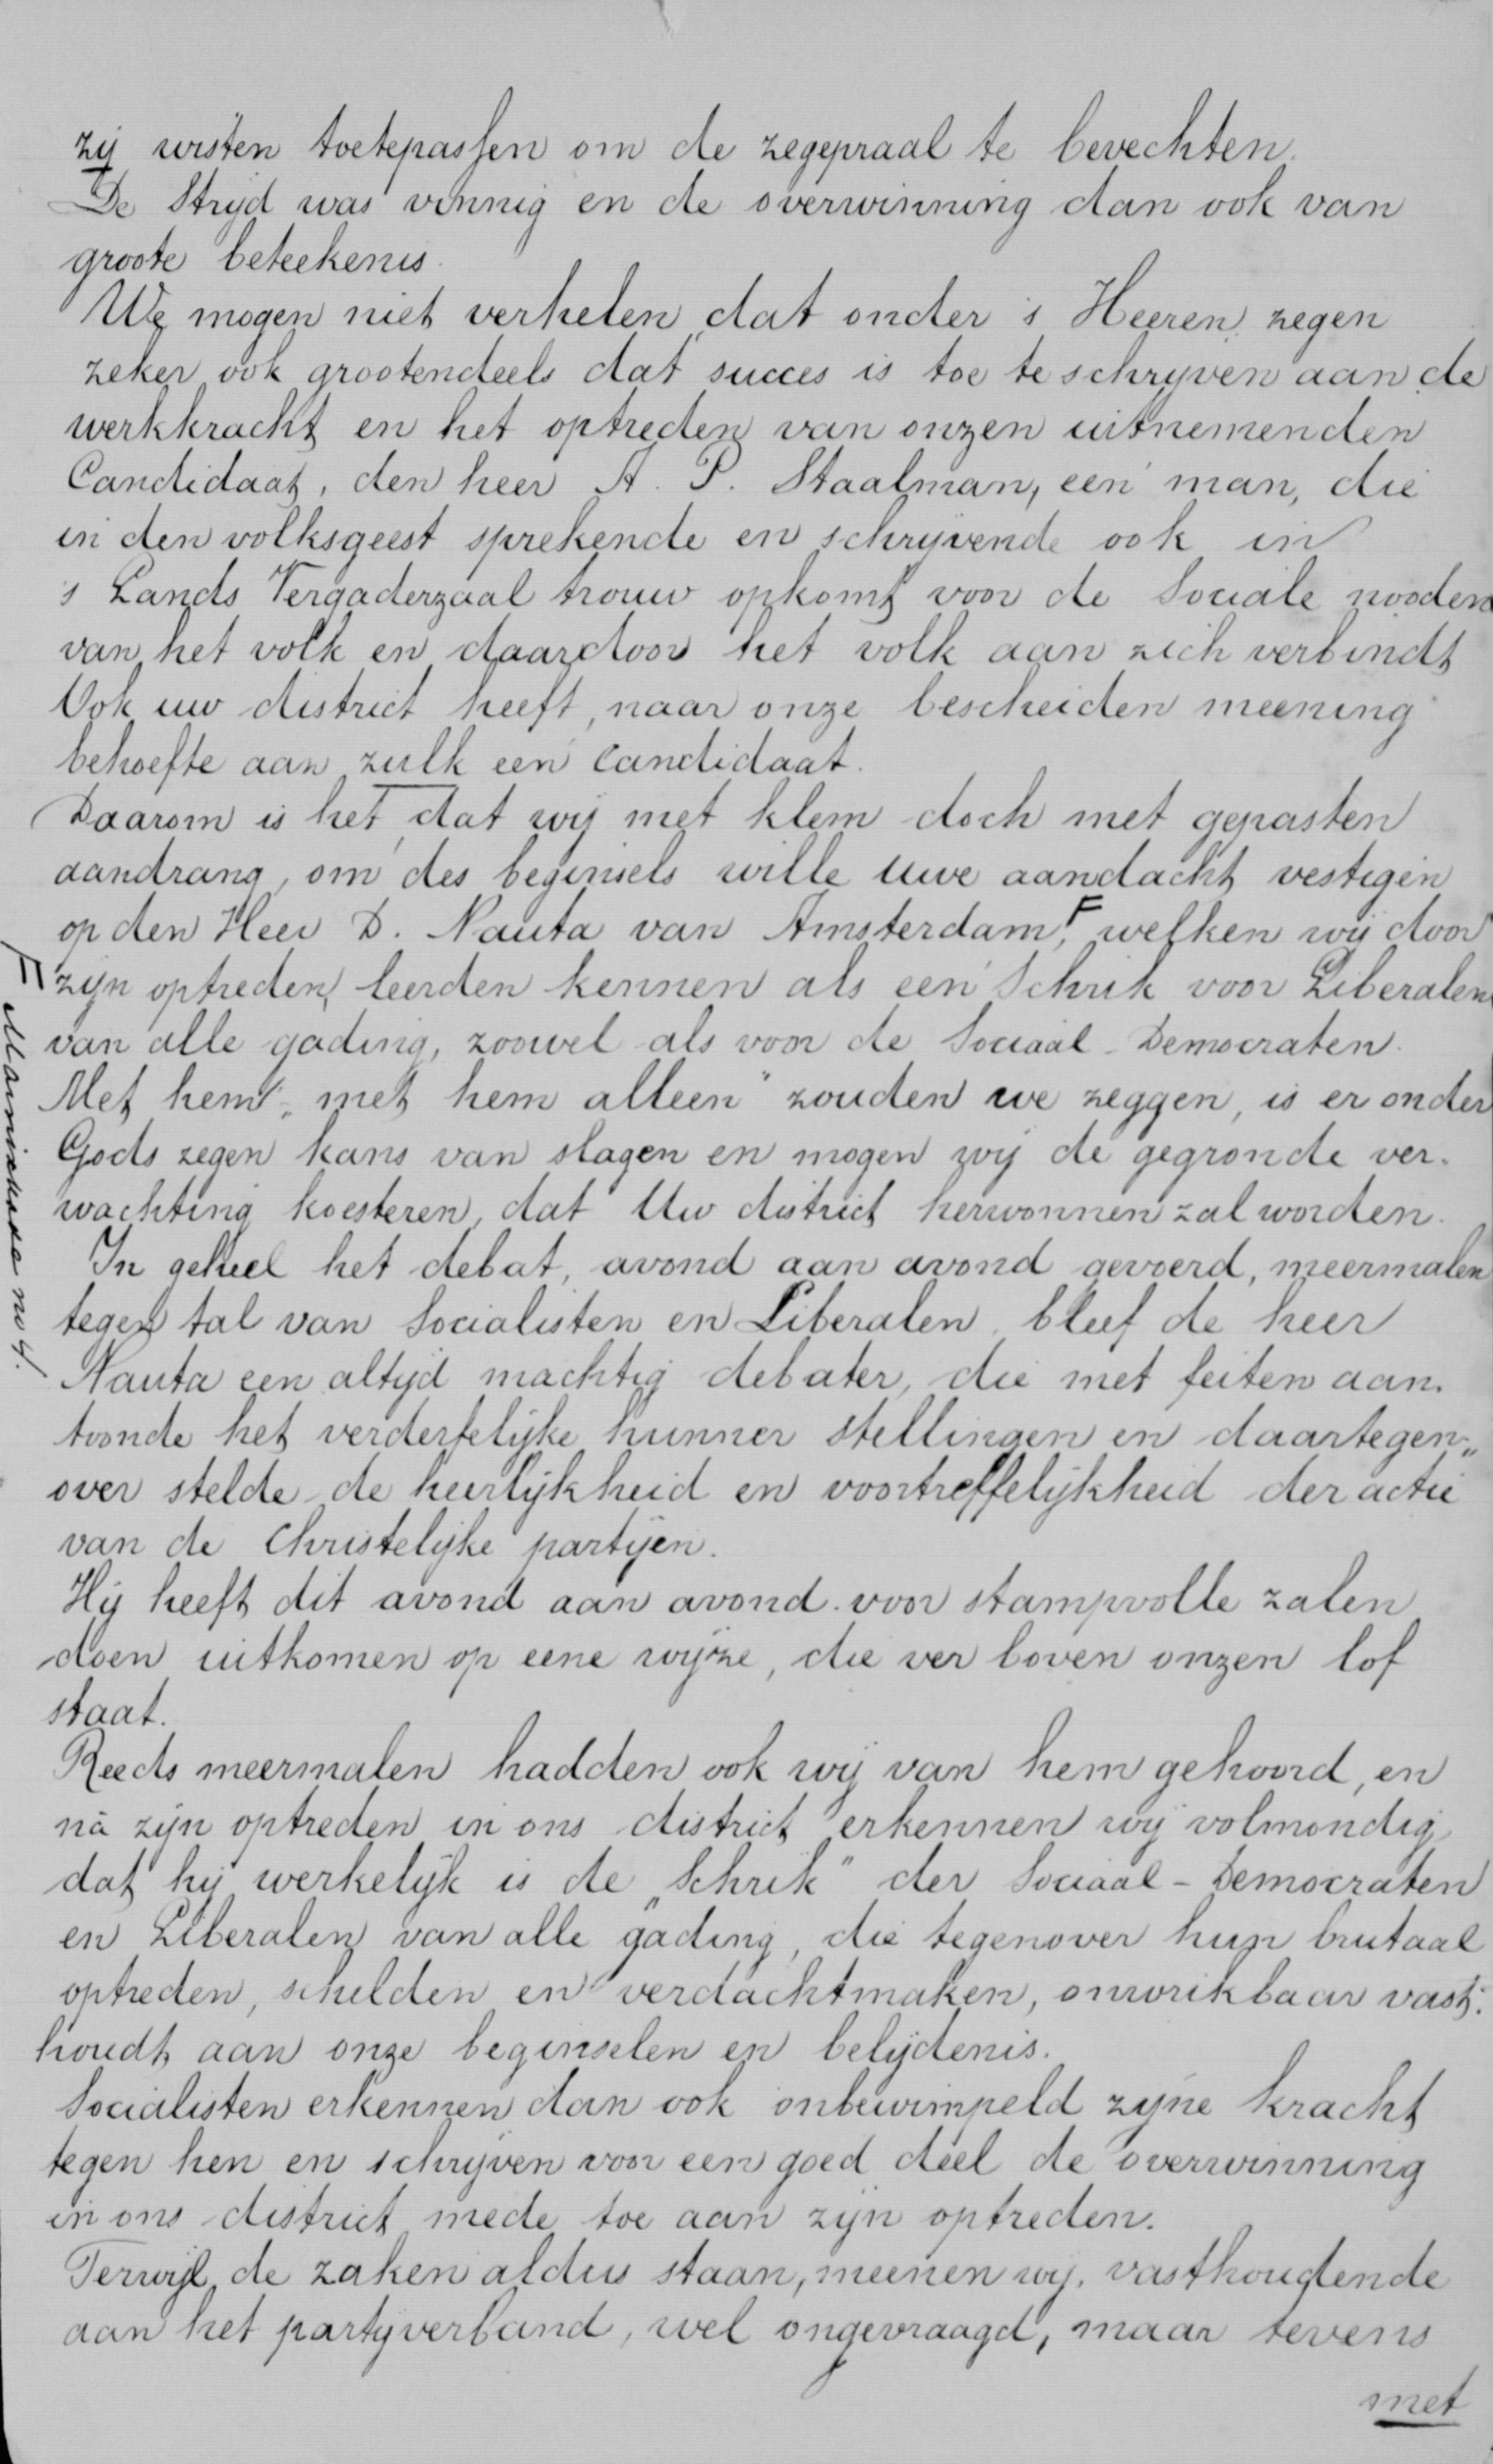 zij wisten toetepassen om de zegepraal te bevechten.
De Strijd was vinnig en de overwinning dan ook van
groote beteekenis.
We mogen niet verhelen, dat onder 's Heeren zegen
zeker ook grootendeels dat succes is toe te schrijven aan de
werkkracht en het optreden van onzen uitnemenden
Candidaat, den heer A. P. Staalman, een man, die
in den volksgeest sprekende en schrijvende ook in
's Lands Vergaderzaal trouw opkomt voor de Sociale nooden
van het volk en daardoor het volk aan zich verbindt
Ook uw district heeft, naar onze bescheiden meening
behoefte aan zulk een candidaat.
Daarom is het, dat wij met klem doch met gepasten
aandrang, om des beginsels wille uwe aandacht vestigen
op den Heer D. Nauta van Amsterdam, F welken wij door
zijn optreden, leerden kennen als een Schrik voor Liberalen
van alle gading, zoowel als voor de Sociaal-Democraten.
Met hem, "met hem alleen" zouden we zeggen, is er onder
Gods zegen kans van slagen en mogen wij de gegronde ver-
wachting koesteren, dat Uw district herwonnen zal worden.
In geheel het debat, avond aan avond gevoerd, meermalen
tegen tal van Socialisten en Liberalen, bleef de heer
Nauta een altijd machtig debater, die met feiten aan-
toonde het verderfelijke hunner stellingen en daartegen-
over stelde de heerlijkheid en voortreffelijkheid der actie
van de Christelijke partijen.
Hij heeft dit avond aan avond voor stampvolle zalen
doen uitkomen op eene wijze, die ver boven onzen lof
staat.
Reeds meermalen hadden ook wij van hem gehoord, en
na zijn optreden in ons district erkennen wij volmondig,
dat hij werkelijk is de "Schrik" der Sociaal-Democraten
en Liberalen van alle gading, die tegenover hun brutaal
optreden, schelden en verdachtmaken, onwrikbaar vast-
houdt aan onze beginselen en belijdenis.
Socialisten erkennen dan ook onbewimpeld zijne kracht
tegen hen en schrijven voor een goed deel de overwinning
in ons district mede toe aan zijn optreden.
Terwijl de zaken aldus staan, meenen wij, vasthoudende
aan het partijverband, wel ongevraagd, maar tevens
met
F no 4.